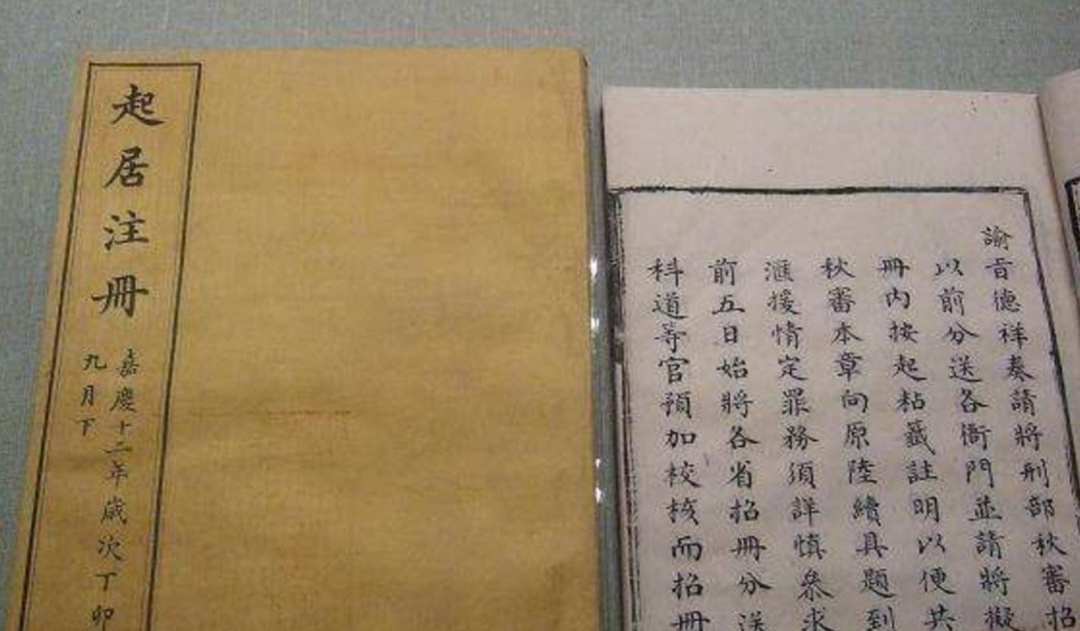 起居注冊
嘉慶十二年歲次丁卯
九月下
諭旨德祥奏請將刑部秋審招
以前分送各衙門並請將擬
冊內按起粘籤註明以便共
秋審本章向原陸續具題到
滙援情定罪務須詳慎叅求
前五日始將各省招冊分送
科道等官預加校核而招冊